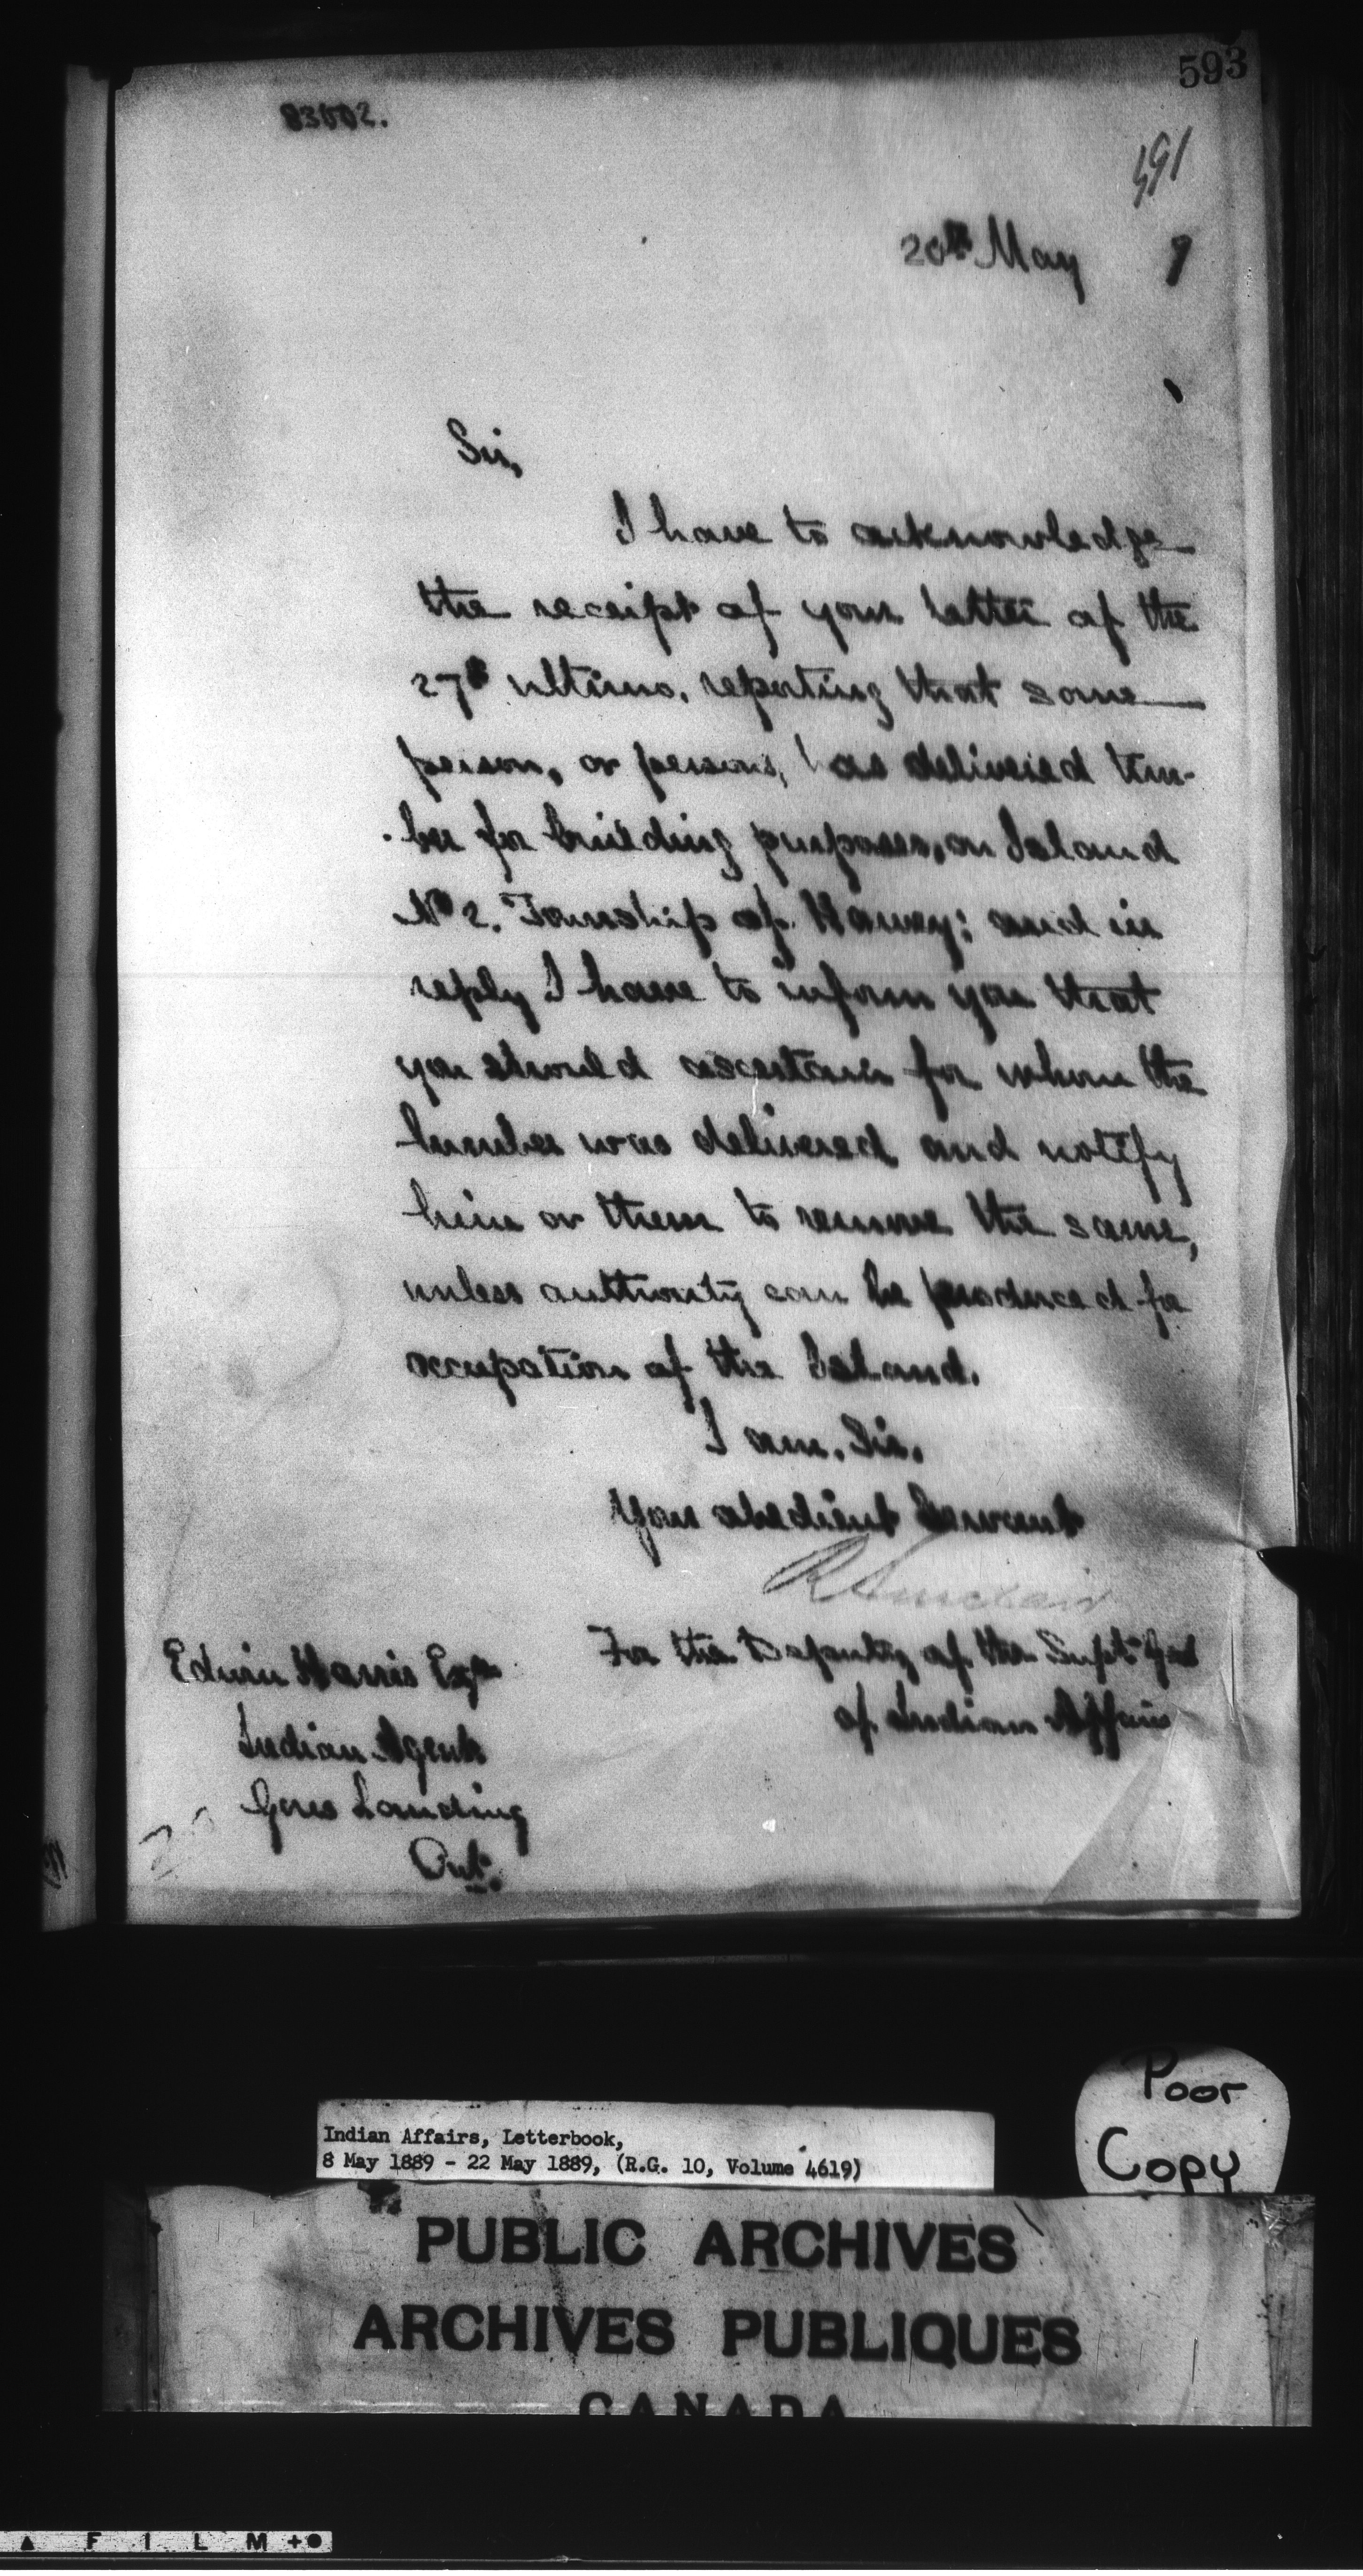 593
83002.
591
20th May 9
Sir,
I have to acknowledge
the receipt of your letter of the
27th ultimo, reporting that some
person, or persons, has delivered tim-
-ber for building purposes, on Island
No 2. Township of Harvey; and in
reply I have to inform you that
you should ascertain for whom the
lumber was delivered and notify
him or them to remove the same,
unless authority can be produced for
occupation of the Island.
I am, Sir,
Your obedient Servant
R Sinclair
For the Deputy of the Supt Genl
of Indian Affairs
Edwin Harris Esqre
Indian Agent
Gores Landing
Ont.
Poor
Copy
Indian Affairs, Letterbook,
8 May 1889 - 22 May 1889, (R.G. 10, Volume 4619)
PUBLIC ARCHIVES
ARCHIVES PUBLIQUES
CANADA
FILM